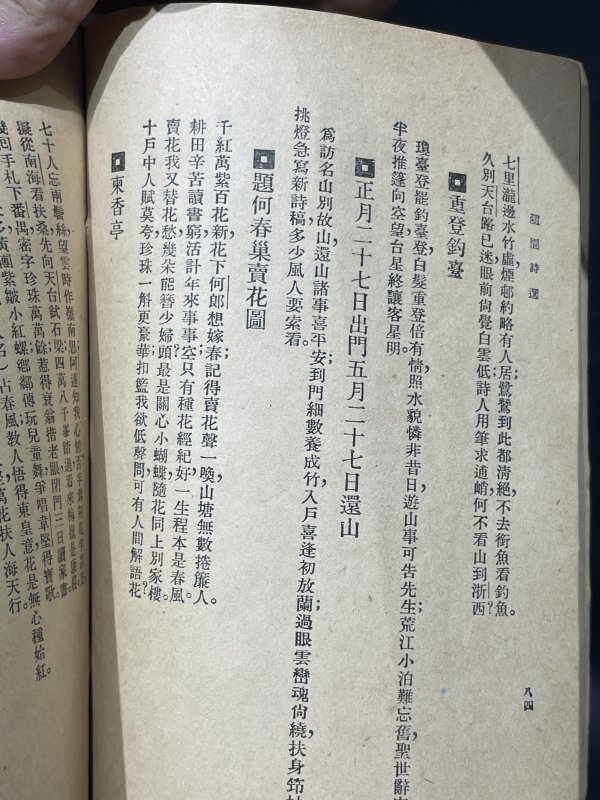 隨園詩選
八四
七里瀧邊水竹虛，煙邨約略有人居；鷺鷥到此都淸絕，不去銜魚看釣魚。
久別天台路已迷，眼前尙覺白雲低；詩人用筆求逋峭，何不看山到浙西？
重登釣臺
瓊臺登罷釣臺登，白髮重登倍有情，照水貌憐非昔日，遊山事可吿先生；荒江小泊難忘舊，聖世辭
半夜推篷向空望，台星終讓客星明。
正月二十七日出門五月二十七日還山
爲訪名山別故山，還山諸事喜平安；到門細數養成竹，入戶喜逢初放蘭；過眼雲巒魂尙繞，扶身筇
挑燈急寫新詩稿，多少風人要索看。
題何春巢賣花圖
千紅萬紫百花新，花下何郎想嫁春；記得賣花聲一喚，山塘無數捲簾人。
耕田辛苦讀書窮，活計年來事事空；只有種花經紀好，一生程本是春風。
賣花我又替花愁，幾朵能簪少婦頭？最是關心小蝴蝶，隨花同上別家樓。
十戶中人賦莫夸，珍珠一斛更豪華；扣籃我欲低聲問，可有人間解語花？
柬香亭
七十人忘兩鬢絲，望雲時作嶺南思；阿連知我心情
擬從南海看扶桑，先向天台試石梁；四萬八千峯踏過，
幾回手札下番禺，密字珍珠萬萬餘；惹得衰翁揩老眼，閉門三日讀家書。
紫皺小紅螺，鄉鄰傳玩兒童舞，爭唱韋堅得寶歌。
占春風，敎人悟得東皇意，花是無心種始紅。
萬花扶人海天行。